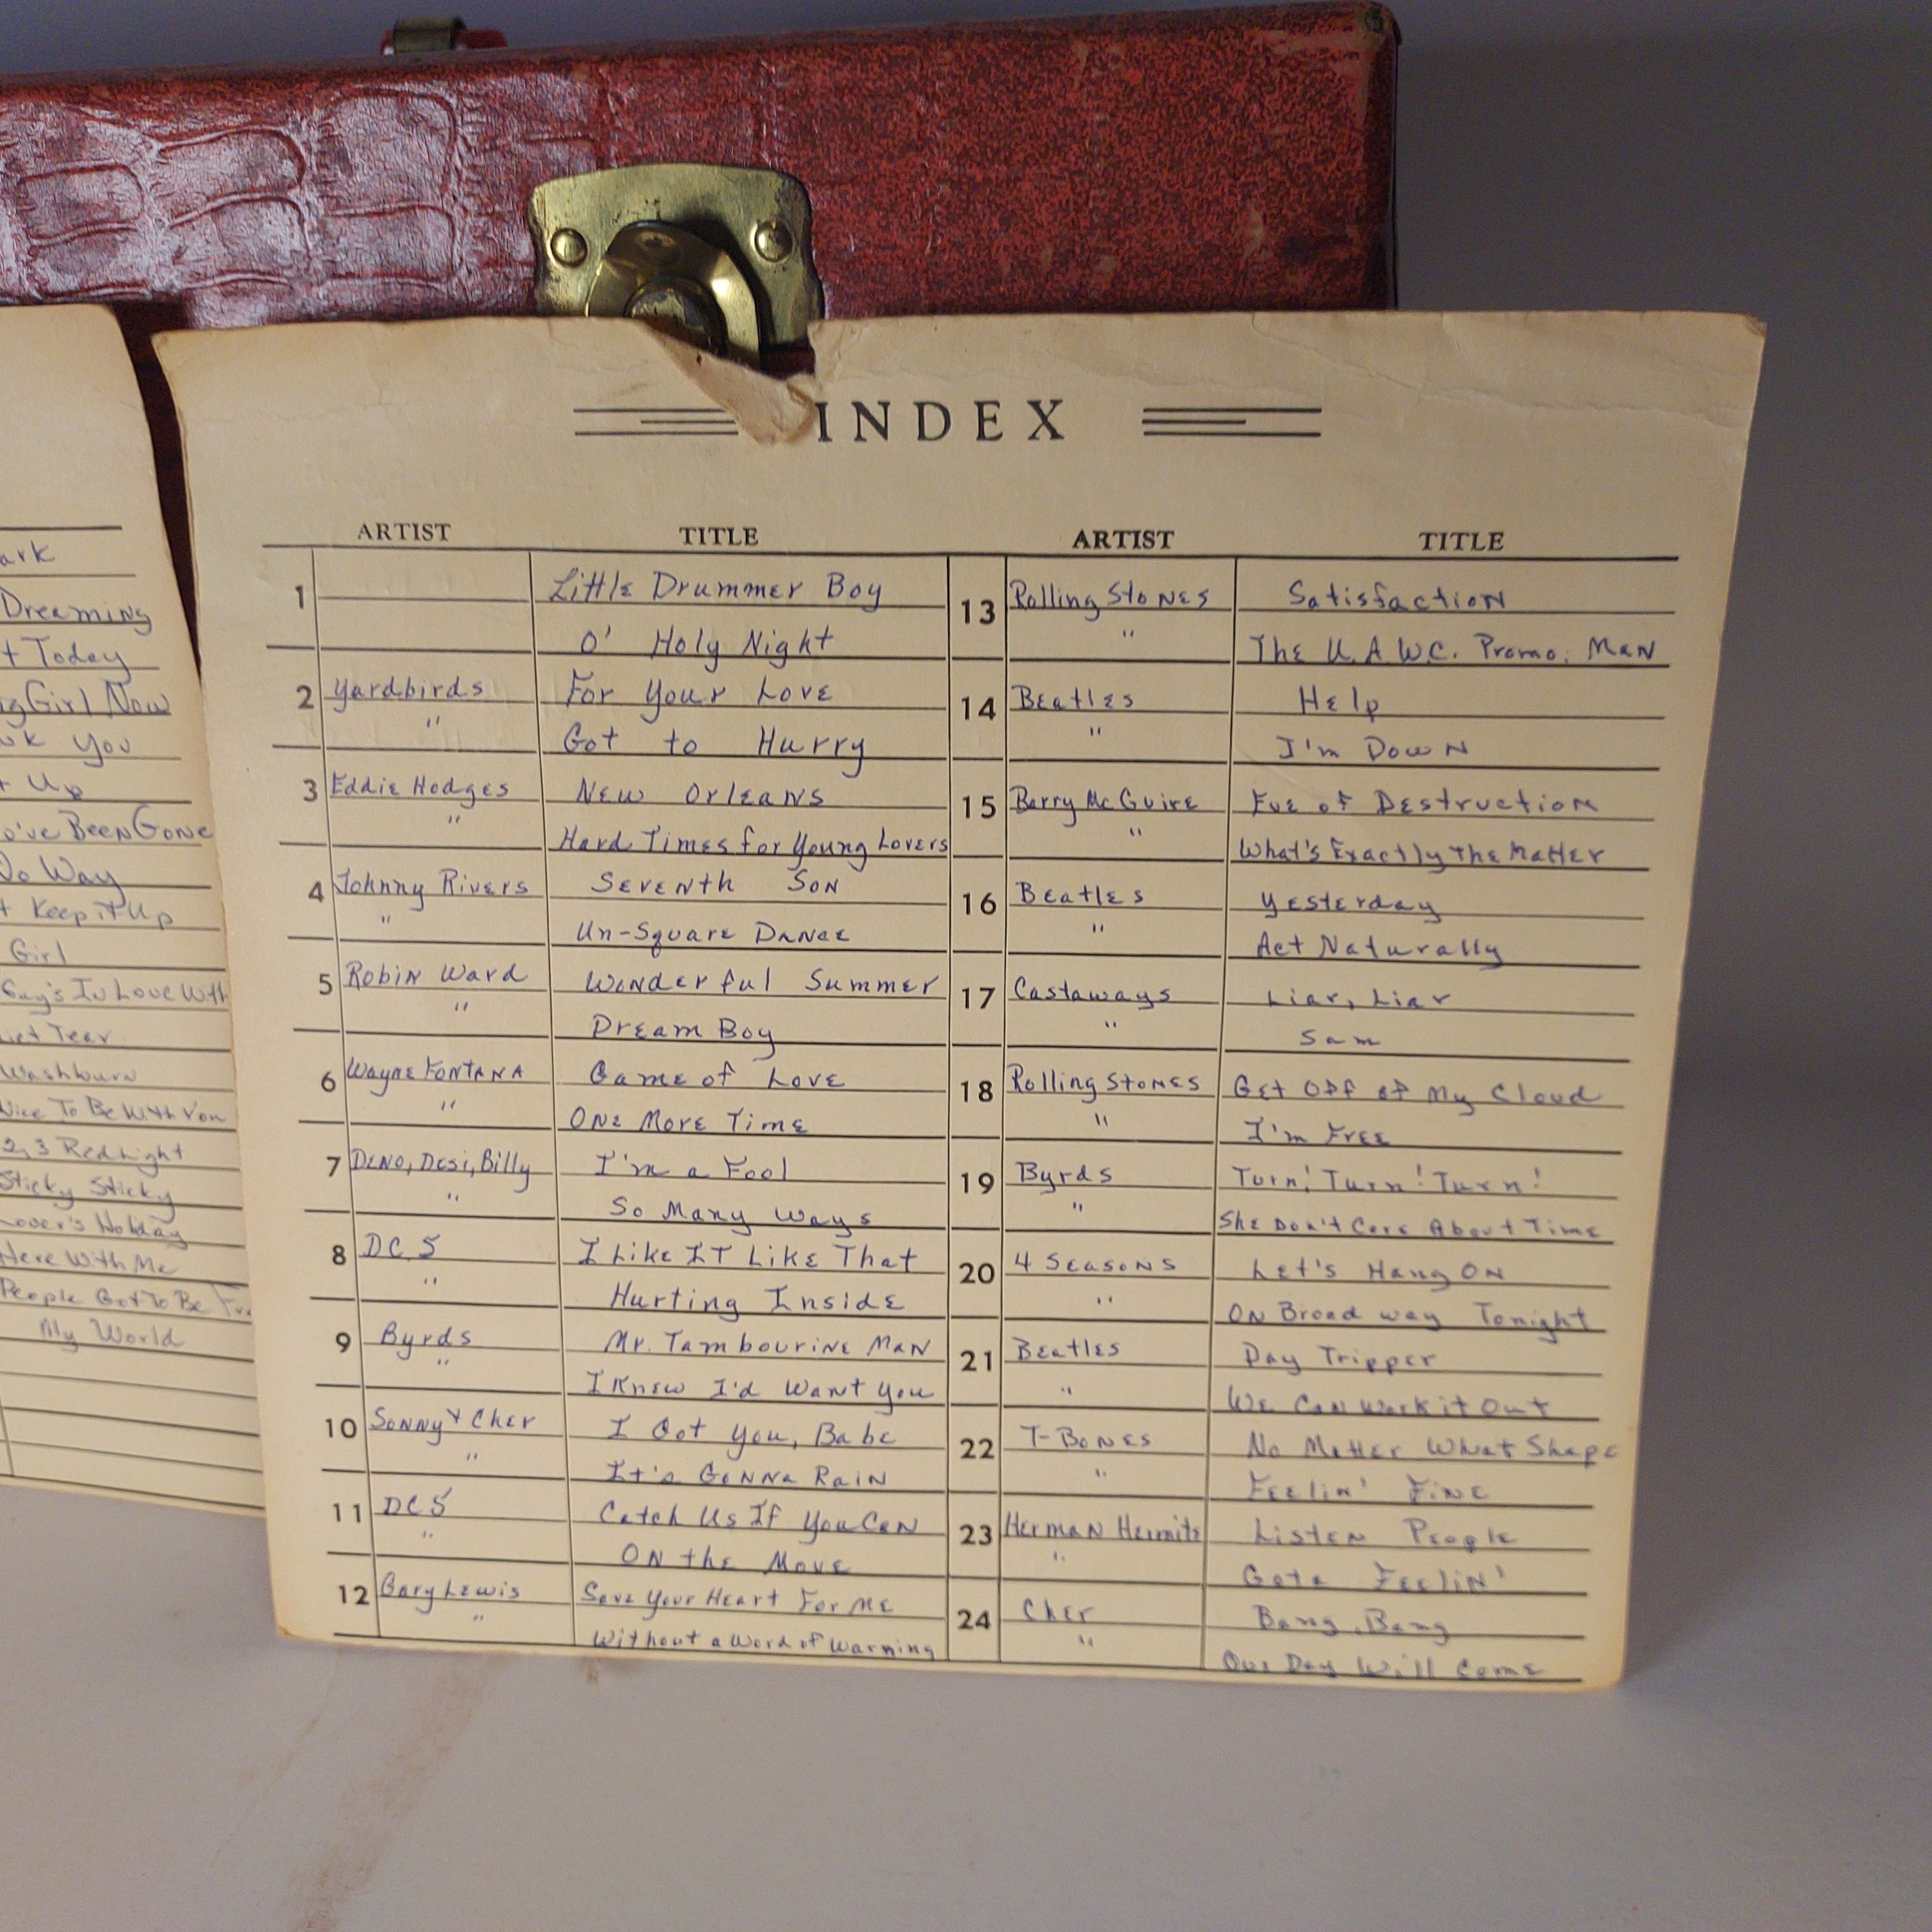 ark
Dreaming
t Today
Girl Now
You
t Up
've Been Gone
No Way
t Keep it Up
Girl
Guy's In Love With
et Tear
Washburn
Nice To Be With You
2, 3 Red Light
Sticky Sticky
Lover's Holiday
Here With Me
People Got To Be
My World
INDEX
ARTIST TITLE ARTIST TITLE
1 Little Drummer Boy
O' Holy Night
2 Yardbirds For Your Love
" Got to Hurry
3 Eddie Hodges New Orleans
" Hard Times for Young Lovers
4 Johnny Rivers Seventh Son
" Un-Square Dance
5 Robin Ward Wonderful Summer
" Dream Boy
6 Wayne Fontana Game of Love
" One More Time
7 Dino, Desi, Billy I'm a Fool
" So Many Ways
8 DC 5 I Like It Like That
" Hurting Inside
9 Byrds Mr. Tambourine Man
" I Knew I'd Want You
10 Sonny + Cher I Got You, Babe
" It's Gonna Rain
11 DC 5 Catch Us If You Can
" On the Move
12 Gary Lewis Save Your Heart For Me
" Without a Word of Warning
13 Rolling Stones Satisfaction
" The U.A.W.C. Promo. Man
14 Beatles Help
" I'm Down
15 Barry McGuire Eve of Destruction
" What's Exactly The Matter
16 Beatles Yesterday
" Act Naturally
17 Castaways Liar, Liar
" Sam
18 Rolling Stones Get Off of My Cloud
" I'm Free
19 Byrds Turn! Turn! Turn!
" She Don't Care About Time
20 4 Seasons Let's Hang On
" On Broadway Tonight
21 Beatles Day Tripper
" We Can Work it Out
22 T-Bones No Matter What Shape
" Feelin' Fine
23 Herman Hermits Listen People
" Gota Feelin'
24 Cher Bang, Bang
" Our Day Will Come